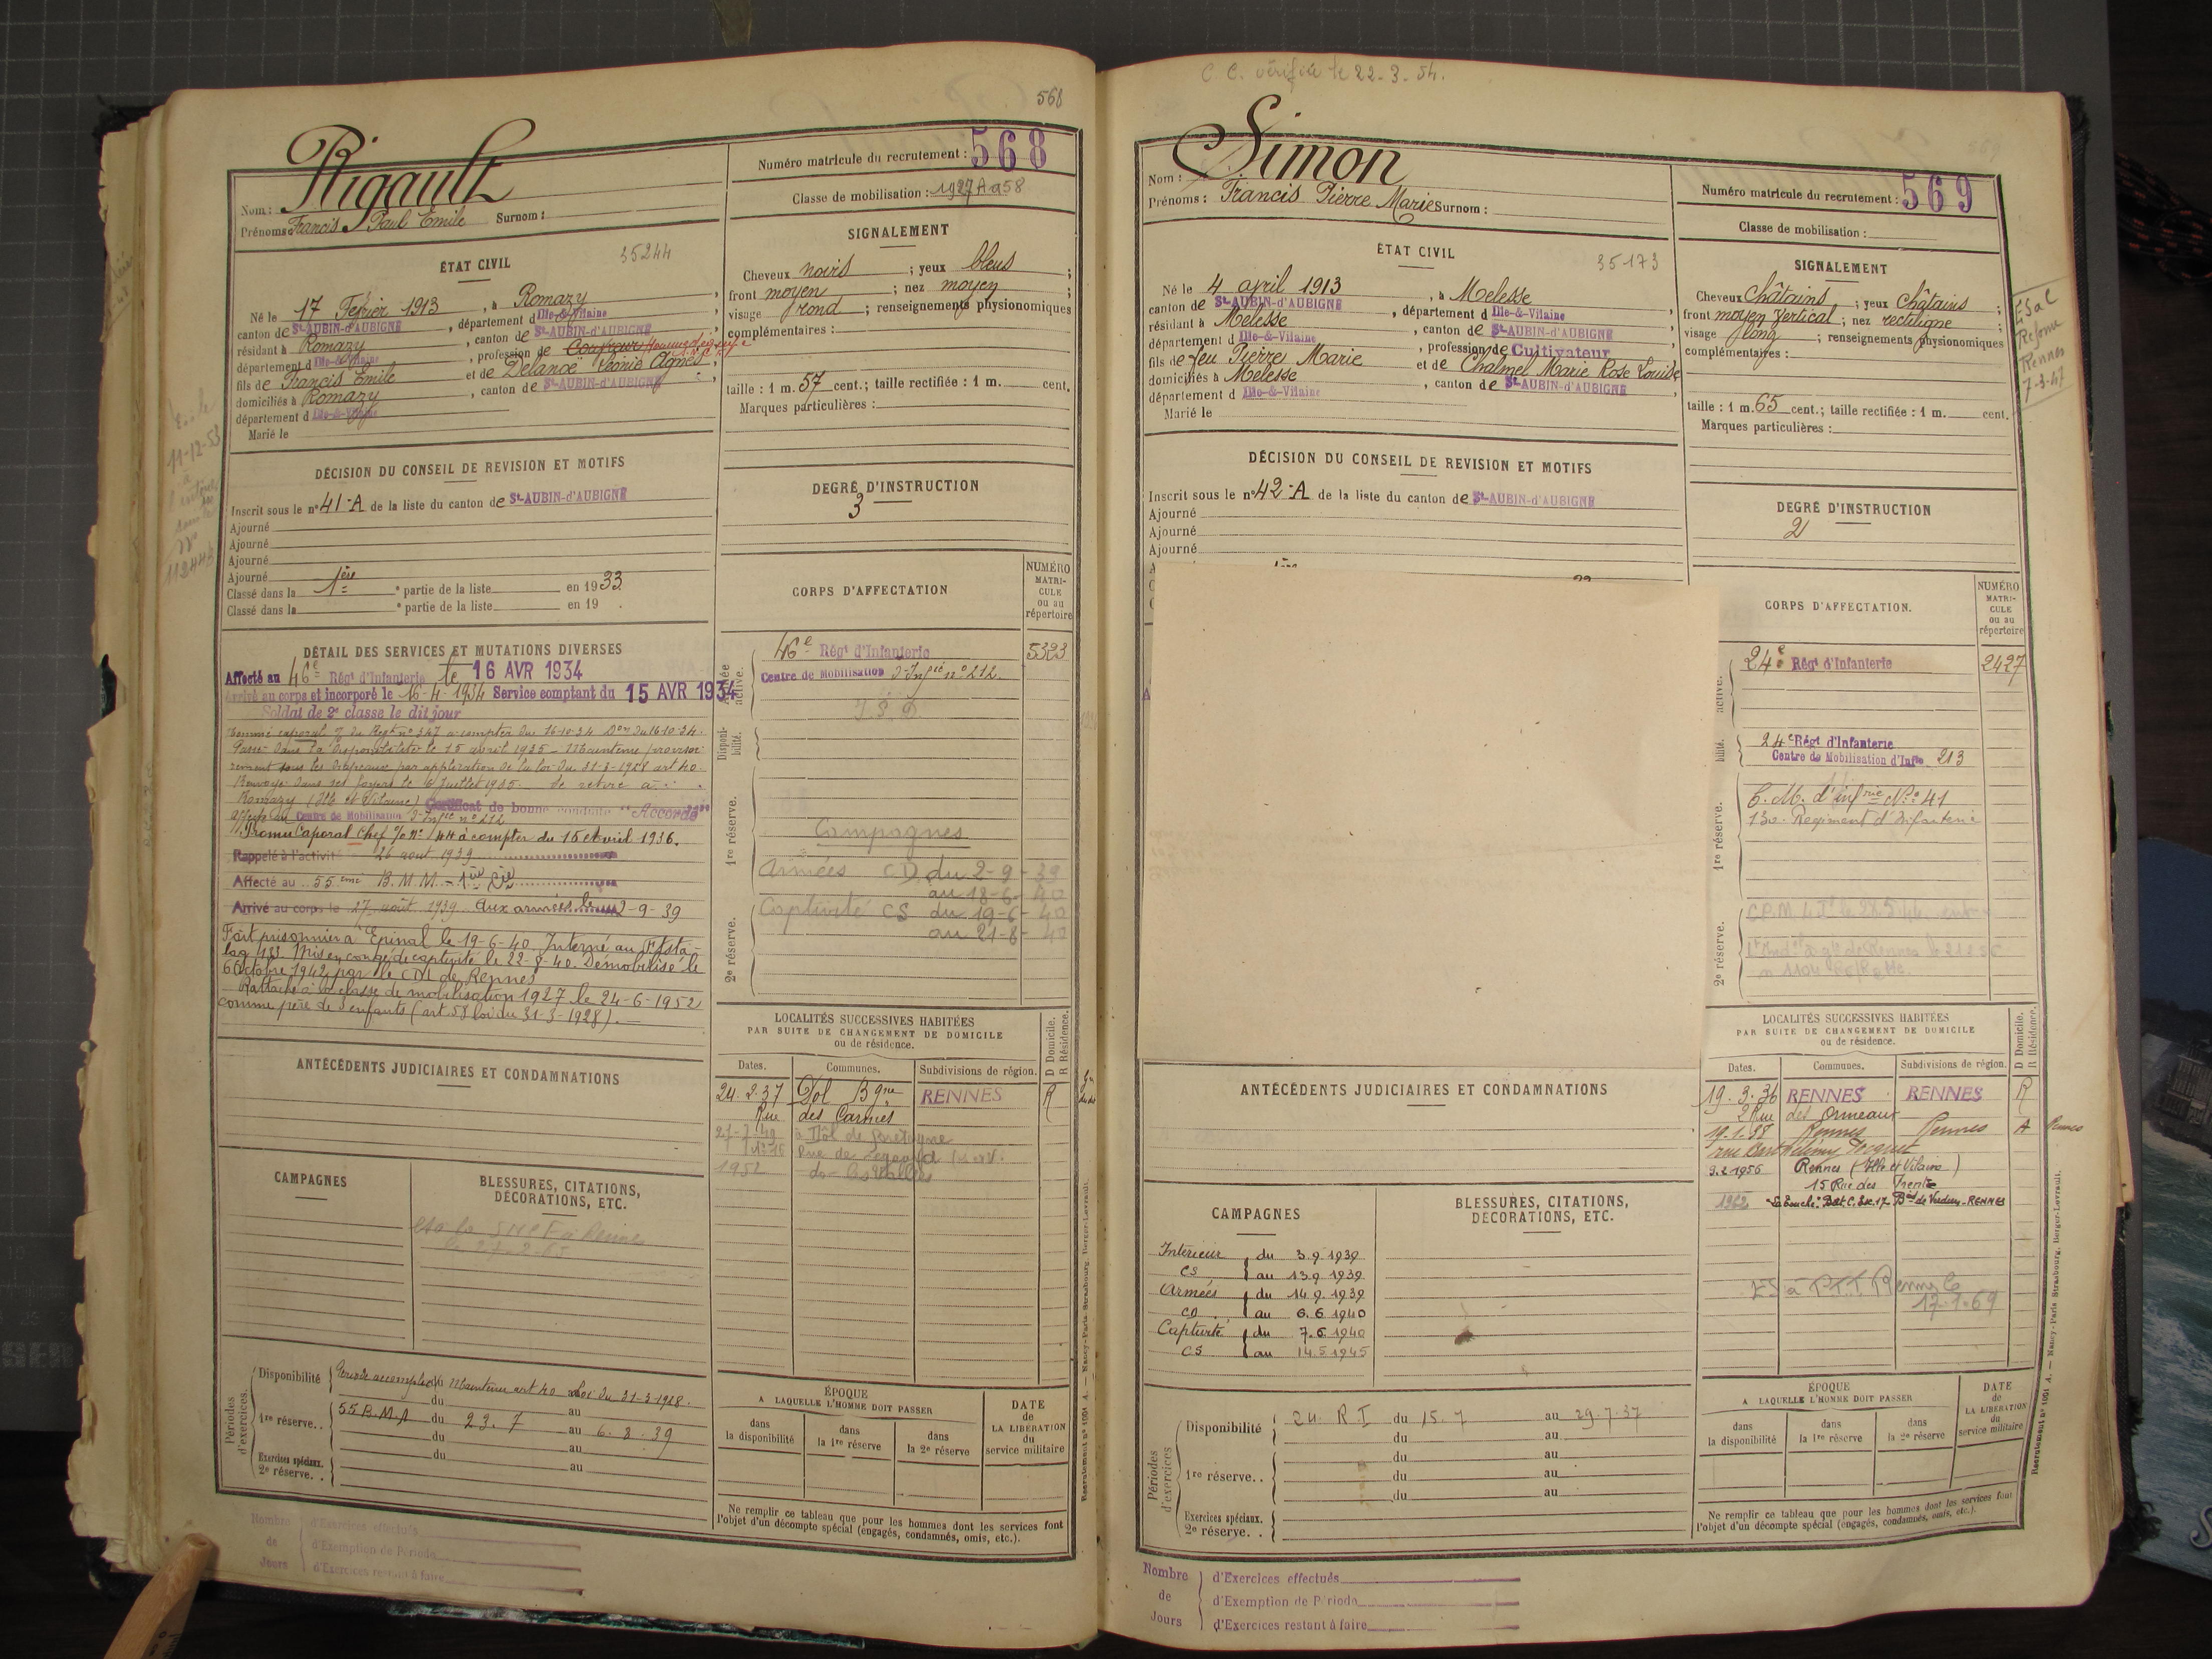 568
Rigault
Nom :
Prénoms : Francis Paul Emile Surnom :
Numéro matricule du recrutement : 568
Classe de mobilisation : 1927 A a58
ÉTAT CIVIL
35244
Né le 17 Février 1913, à Romazy,
canton de St-AUBIN-d'AUBIGNÉ, département d Ille-&-Vilaine
résidant à Romazy, canton de St-AUBIN-d'AUBIGNÉ,
département d Ille-&-Vilaine, profession de
fils de Francis Emile et de Delance Léonie Agnès,
domiciliés à Romazy, canton de St-AUBIN-d'AUBIGNÉ,
département d Ille-&-Vilaine
Marié le
SIGNALEMENT
Cheveux noirs ; yeux bleus ;
front moyen ; nez moyen ;
visage rond ; renseignements physionomiques
complémentaires :
taille : 1 m. 57 cent.; taille rectifiée : 1 m. cent.
Marques particulières :
DÉCISION DU CONSEIL DE REVISION ET MOTIFS
Inscrit sous le n° 41-A de la liste du canton de St-AUBIN-d'AUBIGNÉ
Ajourné
Ajourné
Ajourné
Ajourné
Classé dans la 1ère partie de la liste en 1933.
Classé dans la e partie de la liste en 19 .
DEGRÉ D'INSTRUCTION
3
DÉTAIL DES SERVICES ET MUTATIONS DIVERSES
Affecté au 46e Régt d'Infanterie le 16 AVR 1934
Arrivé au corps et incorporé le 16-4-1934 Service comptant du 15 AVR 1934
Soldat de 2e classe le dit jour
Nommé caporal du Régt n° 347 à compter du 16-10-34
Passé dans la disponibilité le 15 avril 1935 - Maintenu provisoi-
rement sous les drapeaux par application de la loi du 31-3-1928 art 40.
Renvoyé dans ses foyers le 6 Juillet 1935. Se retire à
Romazy (Ille et Vilaine) Certificat de bonne conduite "Accordé"
Affecté au Centre de Mobilisation d'Infie n° 212
Promu Caporal Chef à compter du 16 Avril 1936.
Rappelé à l'activité 26 août 1939
Affecté au 55ème B. M. M. - 1ère Cie
Arrivé au corps le 27 août 1939 Aux armées le 2-9-39
Fait prisonnier à Epinal le 19-6-40. Interné au Frontsta-
lag 133. Mis en congé de captivité le 22-8-40. Démobilisé le
6 Octobre 1942 par le CDI de Rennes
Rattaché à la classe de mobilisation 1927 le 24-6-1952
comme père de enfants (art. 58 loi du 31-3-1928).
CORPS D'AFFECTATION
NUMÉRO MATRI-CULE ou au répertoire
Armée active.
46e Régt d'Infanterie 5323
Centre de Mobilisation d'Infie n° 212
Disponi-bilité.
1re réserve.
Campagnes
Armées CD du 2-9-39
au 18-6-40
2e réserve.
Captivité CS du 19-6-40
au 21-8-40
ANTÉCÉDENTS JUDICIAIRES ET CONDAMNATIONS
LOCALITÉS SUCCESSIVES HABITÉES
PAR SUITE DE CHANGEMENT DE DOMICILE
ou de résidence.
D Domicile. R Résidence.
Dates. Communes. Subdivisions de région.
24.2.37 Dol Bgne RENNES R
Rue des Carmes
à Dol de Bretagne
1952
CAMPAGNES
BLESSURES, CITATIONS, DÉCORATIONS, ETC.
Périodes d'exercices.
Disponibilité Période accomplie Maintenu art 40 Loi du 31-3-1928.
du au
1re réserve.. 55 B.M.A du 23.7 au 6.8.39
du au
Exercices spéciaux. 2e réserve. . du au
ÉPOQUE
A LAQUELLE L'HOMME DOIT PASSER
dans la disponibilité dans la 1re réserve dans la 2e réserve
DATE de LA LIBÉRATION du service militaire
Ne remplir ce tableau que pour les hommes dont les services font
l'objet d'un décompte spécial (engagés, condamnés, omis, etc.).
Nombre de Jours
d'Exercices effectués
d'Exemption de Période
d'Exercices restant à faire
Recrutement n° 1051 A. — Nancy-Paris-Strasbourg, Berger-Levrault.
C. C. vérifiée le 22-3-54.
Simon
Nom :
Prénoms : Francis Pierre Marie Surnom :
569
Numéro matricule du recrutement : 569
Classe de mobilisation :
ÉTAT CIVIL
35173
Né le 4 avril 1913, à Melesse,
canton de St-AUBIN-d'AUBIGNÉ, département d Ille-&-Vilaine
résidant à Melesse, canton de St-AUBIN-d'AUBIGNÉ
département d Ille-&-Vilaine, profession de Cultivateur
fils de feu Pierre Marie et de Chalmel Marie Rose Louise
domiciliés à Melesse, canton de St-AUBIN-d'AUBIGNÉ,
département d Ille-&-Vilaine
Marié le
SIGNALEMENT
Cheveux châtains ; yeux châtains ;
front moyen vertical ; nez rectiligne ;
visage long ; renseignements physionomiques
complémentaires :
taille : 1 m. 65 cent.; taille rectifiée : 1 m. cent.
Marques particulières :
Réforme
Rennes
7-3-47
DÉCISION DU CONSEIL DE REVISION ET MOTIFS
Inscrit sous le n° 42-A de la liste du canton de St-AUBIN-d'AUBIGNÉ
Ajourné
Ajourné
Ajourné
DEGRÉ D'INSTRUCTION
2
CORPS D'AFFECTATION.
NUMÉRO MATRI-CULE ou au répertoire
active.
24e Régt d'Infanterie 2427
bilité.
24e Régt d'Infanterie
Centre de Mobilisation d'Infie 213
1re réserve.
C. M. d'infrie N° 41
130. Régiment d'Infanterie
2e réserve.
ANTÉCÉDENTS JUDICIAIRES ET CONDAMNATIONS
LOCALITÉS SUCCESSIVES HABITÉES
PAR SUITE DE CHANGEMENT DE DOMICILE
ou de résidence.
D Domicile. R Résidence.
Dates. Communes. Subdivisions de région.
19.3.36 RENNES RENNES R
2 Rue des Ormeaux
19.1.38 Rennes Rennes A
9.2.1956 Rennes (Ille et Vilaine)
15 Rue des Trente
1962 Bat. C. Esc. 17 Bd de Verdun - RENNES
17-1-69
CAMPAGNES
BLESSURES, CITATIONS, DÉCORATIONS, ETC.
Intérieur du 3.9.1939
CS au 13.9.1939
Armées du 14.9.1939
CD au 6.6.1940
Captivité du 7.6.1940
CS au 14.5.1945
Périodes d'exercices
Disponibilité 24. R I du 15.7 au 29.7.37
du au
du au
1re réserve.. du au
du au
Exercices spéciaux. 2e réserve. .
ÉPOQUE
A LAQUELLE L'HOMME DOIT PASSER
dans la disponibilité dans la 1re réserve dans la 2e réserve
DATE de LA LIBÉRATION du service militaire
Ne remplir ce tableau que pour les hommes dont les services font
l'objet d'un décompte spécial (engagés, condamnés, omis, etc.).
Nombre de Jours
d'Exercices effectués
d'Exemption de Période
d'Exercices restant à faire
Recrutement n° 1051 A. — Nancy-Paris Strasbourg, Berger-Levrault.